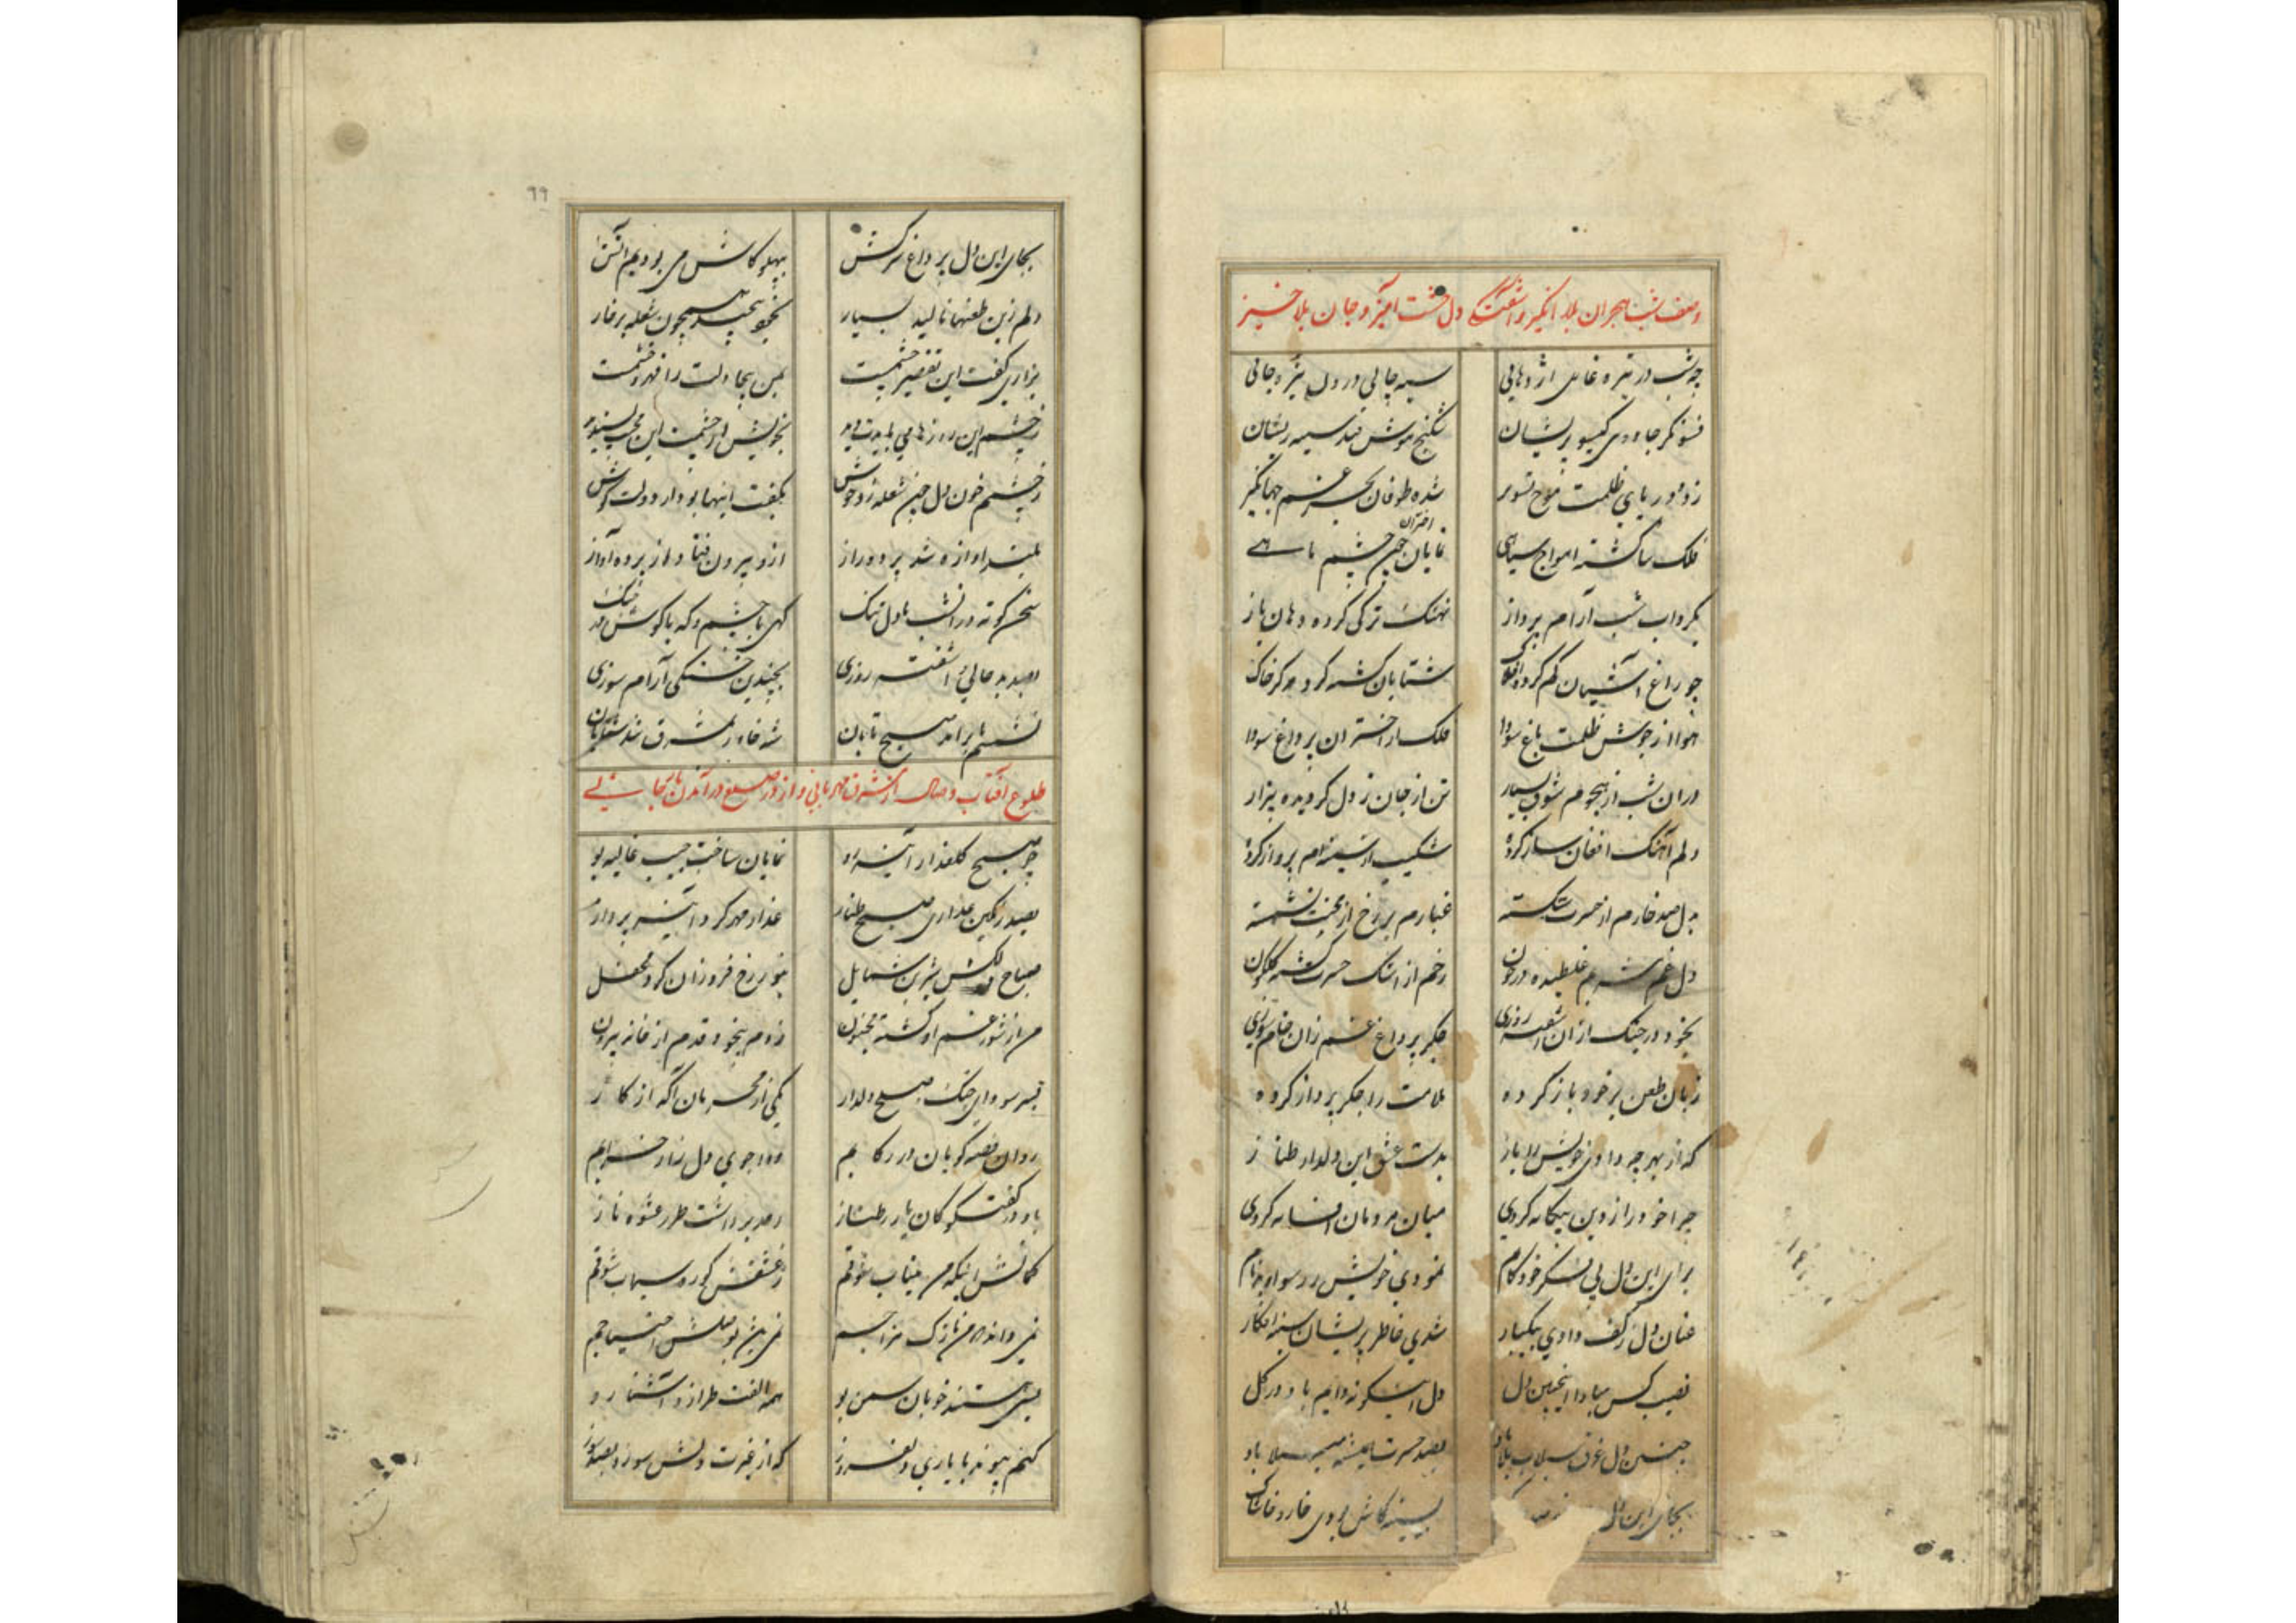 وصف شب هجران بلا انگیز و آشفتگی دل وحشت آمیز و جان بلا خیز
چه شب در تیره غاری اژدهایی سیه چالی درو دل تیره جانی
فسونگر جادوی گیسو پریشان شکنج مویش قید سیه ریشان
زده دریای ظلمت موج تشویر شده طوفان بحر غم جهانگیر
فلک سا گشته امواج سیاهی نمایان اختران چون چشم ماهی
بگرداب شب آرام پرداز نهنگ ترکی کرده دهان باز
چو زاغ آشیان گم کرده افلاک شتابان گشته گرد مرکز خاک
هوا از جوش ظلمت باغ سودا فلک از اختران پر داغ سودا
در آن شب از هجوم شوق بسیار تن از جان ز دل گردیده بیزار
دلم آهنگ افغان ساز کرده شکیب از سینه‌ام پرواز کرده
بدل صد خارم از حسرت شکسته غبارم بر رخ از بخت نشسته
دل غم شربم غلطیده در خون رخم از اشک حسرت گشته گلگون
بخود در جنگ ازان آشفته روزی جگر پر داغ غم زان خام سوزی
زبان طعن بر خود باز کرده ملامت را جگر پرداز کرده
که از بهر چه دادی خویش را باز بدست عشق این دلدار طناز
چرا خود را ز دین بیگانه کردی میان مردمان افسانه کردی
برای این دل بی شکر خودکام نمودی خویش را رسوا و بدنام
عنان دل ز کف دادی بیکبار شدی خاطر پریشان سینه افکار
نصیب کس مبادا اینچنین دل دل اینگونه دایم باد در گل
چنین دل غرق سیلاب بلا باد بصد حسرت همیشه مبتلا باد
بجای این دل بسینه کاش بودی خار و خاشاک
٦٦
بجای این دل پر داغ سرکش بپهلو کاش می بودیم آتش
دلم زین طعنها نالید بسیار بخود پیچید همچون شعله بر خار
بزاری گفت این تقصیر چشمست بمن بیجا دلت را قهر و خشمست
ز چشم این روزها می بایدت دید
ز چشم خون دل چون شعله زد جوش بگفت اینها بود از دولت گوش
بلند آوازه شد پرده راز ازو بیرون فتاد از پرده آواز
سخن کوته در آن شب با دل تنگ گهی با چشم و گه با گوش در جنگ
بصد بد حالی و آشفته روزی بچندین خستگی آرام سوزی
نشستم تا برآمد صبح تابان شه خاور ز مشرق شد شتابان
طلوع آفتاب وصال از مشرق مهربانی و از در صلح در آمدن یار جانی
چو صبح گلعذار آینه رو نمایان ساخت جیب غالیه بو
بصد رنگین عذاری صبح طناز عذار مهر کرد آینه پرداز
صباح دلکش شیرین شمایل بنور رخ فروزان کرد محفل
من از شور غم او گشته مجنون زدم بیخود قدم از خانه بیرون
بسر سودای جنگ و صلح دلدار یکی از محرمان آگه از کار
روان قصه گویان در رکابم دوا جوی دل زار خرابم
باو در گفتگو کان یار طناز ز حد برداشت طرز عشوه ناز
گمانش اینکه من بیتاب شوقم ز عشقش گوره سیماب شوقم
نمی داند که من نازک مزاجم نمی باشد بوصلش احتیاجم
بسی هستند خوبان سمن بو همه الفت طراز و آشنا رو
کنم پیوند با یاری دلفروز که از غیرت دلش سوزد بصد سوز